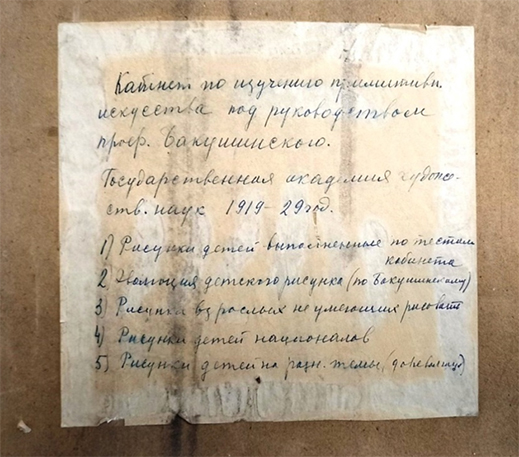 Кабинет по изучению примитивн.
искусства под руководством
проф. Бакушинского.
Государственная академия художе-
ств. наук 1919-29 год.
1) Рисунки детей выполненные по тестам
кабинета
2 Эволюция детского рисунка (по Бакушинскому)
3 Рисунки взрослых не умеющих рисовать
4) Рисунки детей националов
5) Рисунки детей на разн. темы